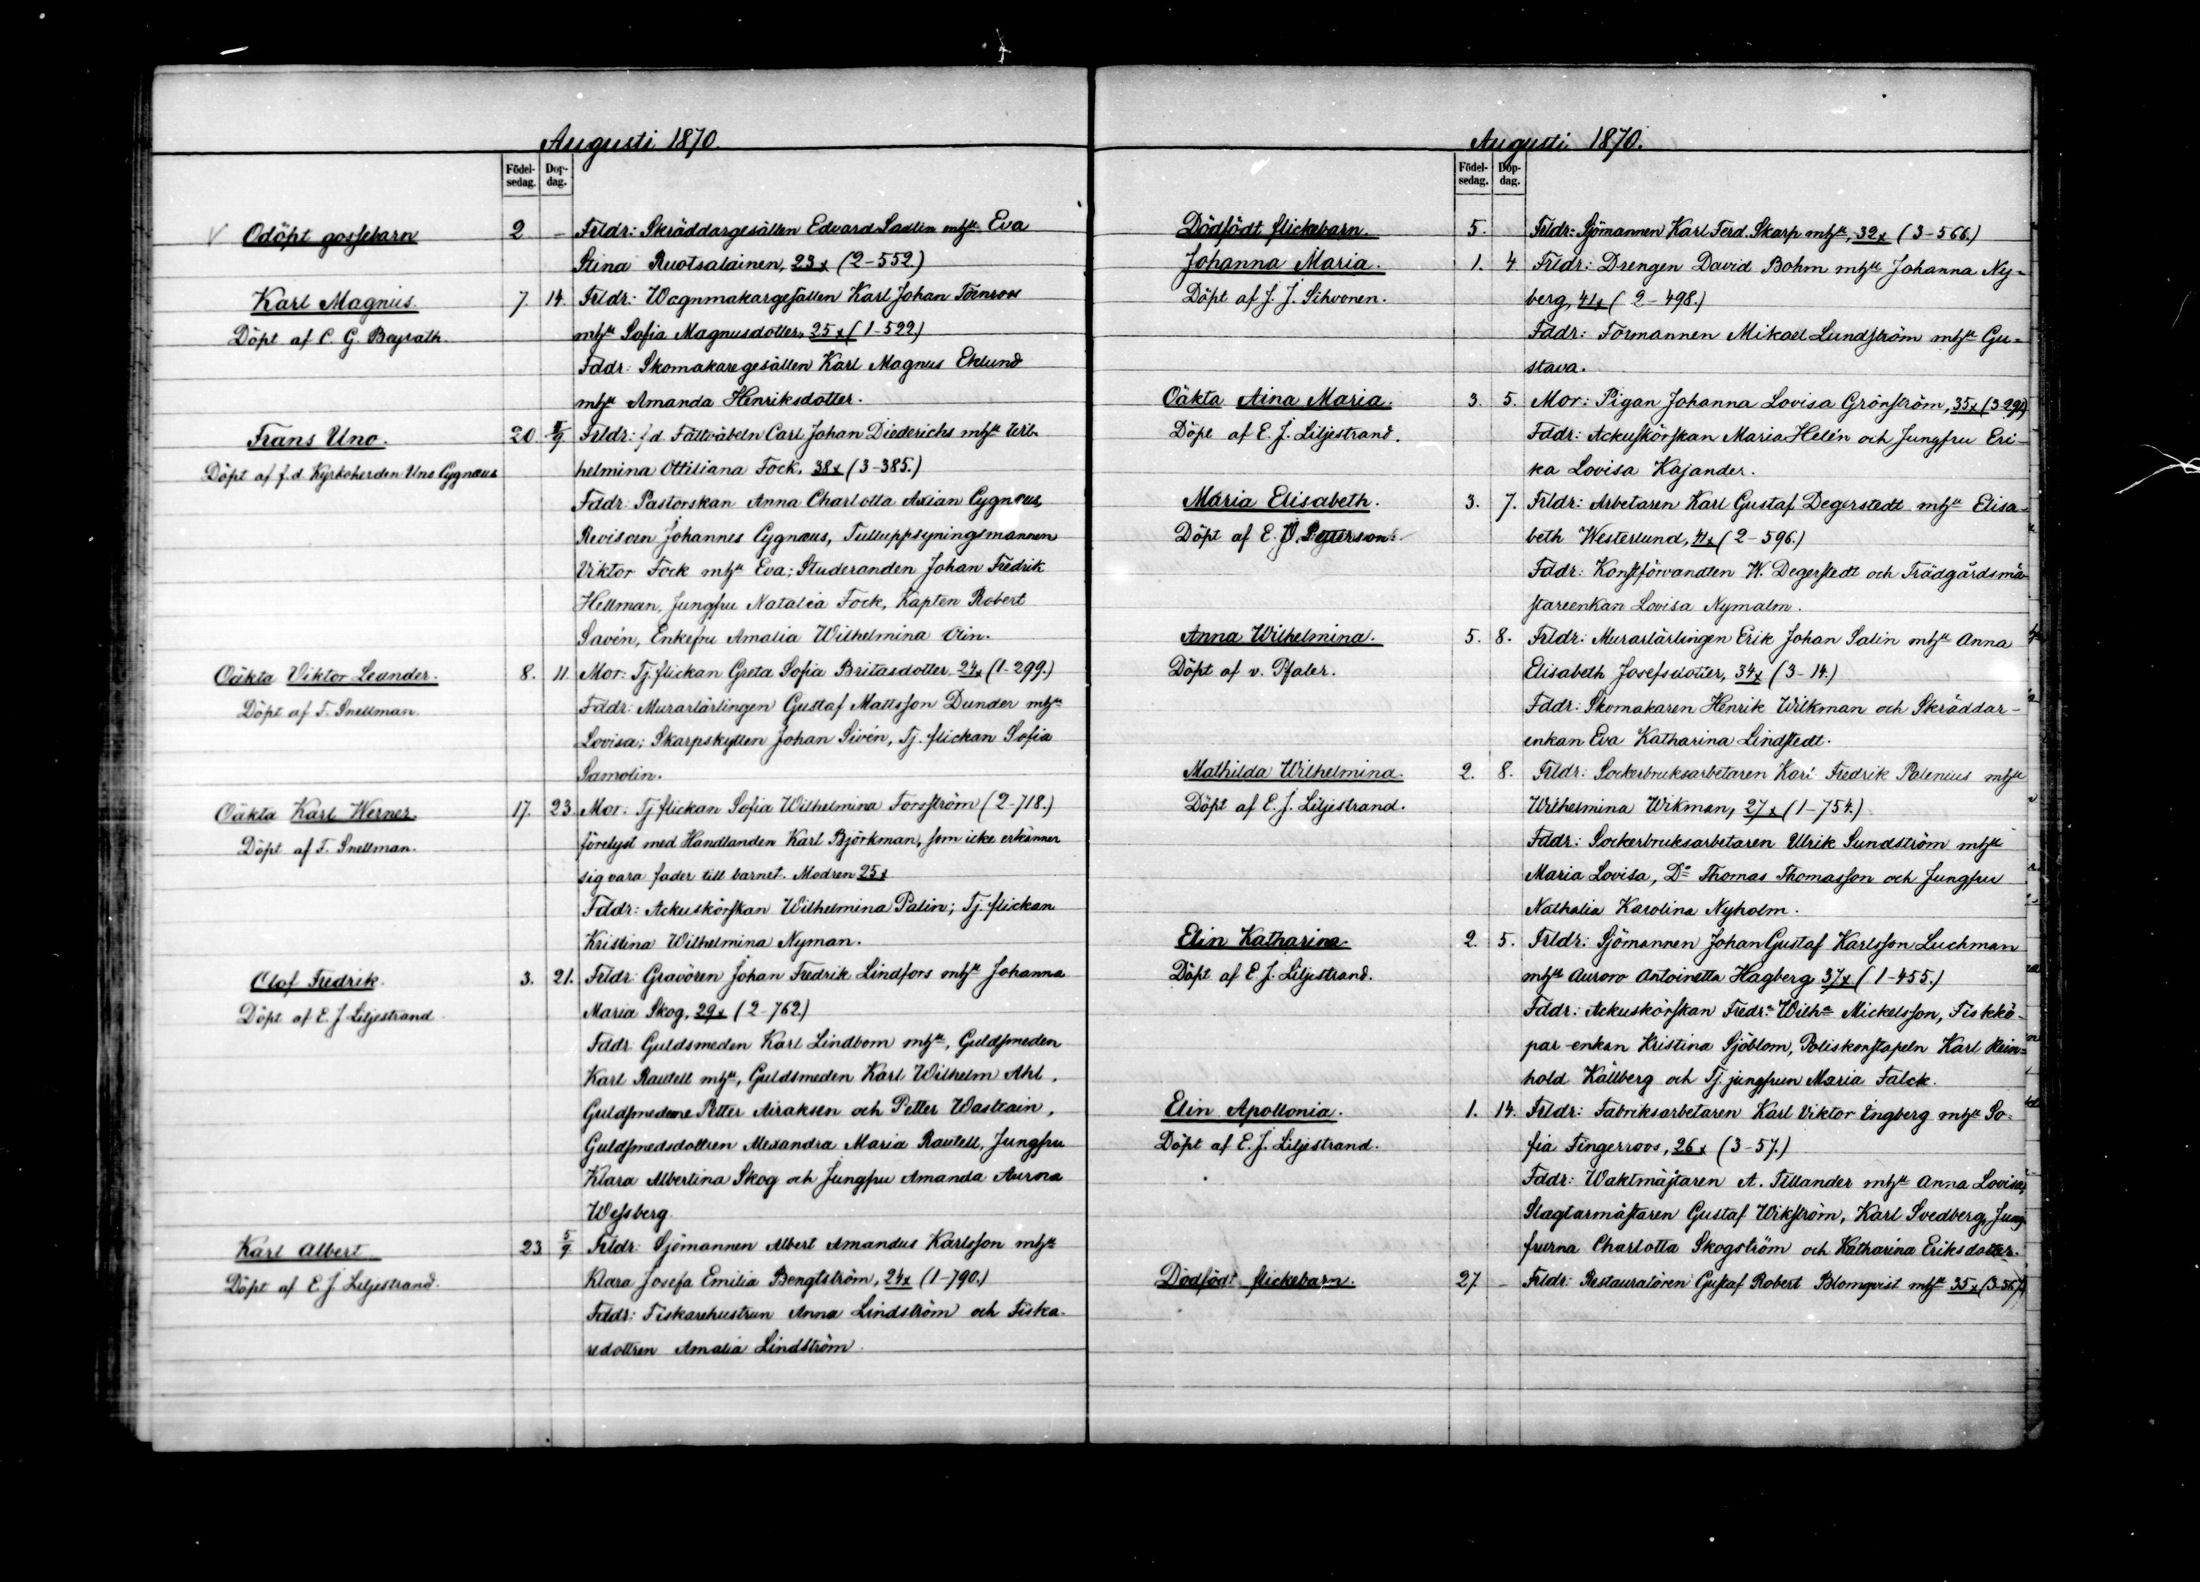 Augusti 1870.
Födel-
sedag.
Dop-
dag.
Odöpt gossebarn 2 – Frldr: Skräddargesällen Edvard Sadlin mhu Eva
Stina Ruotsalainen, 23x (2-552)
Karl Magnus 7 14. Frldr: Wagnmakargesällen Karl Johan Törnroos
Döpt af C. G. mhu Sofia Magnusdotter, 25x (1-522)
Fddr: Skomakaregesällen Karl Magnus Eklund
mhu Amanda Henriksdotter.
Frans Uno. 20 5/9 Frldr: f.d Fältväbeln Carl Johan Diederichs mhu Wil-
Döpt af f.d. Kyrkoherden Uno Cygnæus helmina Ottiliana Fock, 38x (3-385.)
Fddr: Pastorskan Anna Charlotta Axian Cygnæus,
Revisoren Johannes Cygnæus, Tulluppsyningsmannen
Viktor Fock mhu Eva; Studeranden Johan Fredrik
Hellman, Jungfru Natalia Fock, Kapten Robert
Savén, Enkefru Amalia Wilhelmina Olin.
Oäkta Viktor Leander. 8. 11 Mor: Tj. flickan Greta Sofia Britasdotter 24x (1-299.)
Döpt af T. Snellman. Fddr: Murarlärlingen Gustaf Mattsson Dunder mhu
Lovisa; Skarpskytten Johan Sivén, Tj. flickan Sofia
Samolin.
Oäkta Karl Werner. 17. 23 Mor: Tj flickan Sofia Wilhelmina Forsström (2-718.)
Döpt af T. Snellman. förelyst med Handlanden Karl Björkman, som icke erkänner
sig vara fader till barnet. Modren 25x
Fddr: Ackuskörskan Wilhelmina Palin; Tj. flickan
Kristina Wilhelmina Nyman.
Olof Fredrik. 3. 21. Frldr: Gravören Johan Fredrik Lindfors mhu Johanna
Döpt af E. J Liljestrand Maria Skog, 29x (2-762)
Fddr: Guldsmeden Karl Lindbom mhu, Guldsmeden
Karl Rautell mhu, Guldsmeden Karl Wilhelm Ahl,
Guldsmederne Petter Airaksen och Petter Wastcain,
Guldsmedsdottren Alexandra Maria Rautell, Jungfru
Klara Albertina Skog och Jungfru Amanda Aurora
Wessberg
Karl Albert 23 5/9 Frldr: Sjömannen Albert Amandus Karlsson mhu
Döpt af E. J Liljestrand. Klara Josefa Emilia Bengtström, 24x (1-790.)
Fddr: Fiskarehustrun Anna Lindström och Fiska-
redottren Amalia Lindström
Augusti 1870.
Födel-
sedag.
Döp-
dag.
Dödfödt flickebarn. 5. Frldr: Sjömannen Karl Ferd. Skarp mhu, 32x (3-566.)
Johanna Maria. 1. 4 Frldr: Drengen David Bohm mhu Johanna Ny-
Döpt af J. J. Sihvonen. berg, 41x (2-498.)
Fddr: Formannen Mikael Lundström mhu Gu-
stava.
Oäkta Aina Maria. 3. 5. Mor: Pigan Johanna Lovisa Grönström, 35x
Döpt af E. J. Liljestrand. Fddr: Ackuskörskan Maria Helén och Jungfru Eri-
ka Lovisa Kajander.
Maria Elisabeth. 3. 7. Frldr: Arbetaren Karl Gustaf Degerstedt mhu Elisa-
Döpt af E. J. Petterson. beth Westerlund, 41x (2-596.)
Fddr: Konstförvandten W. Degerstedt och Trädgårdsmä-
stareenkan Lovisa Nymalm.
Anna Wilhelmina. 5. 8. Frldr: Murarlärlingen Erik Johan Salin mhu Anna
Döpt af v. Pfaler. Elisabeth Josefsdotter, 34x (3-14.)
Fddr: Skomakaren Henrik Wilkman och Skräddar-
enkan Eva Katharina Lindstedt.
Mathilda Wilhelmina. 2. 8. Frldr: Sockerbruksarbetaren Karl Fredrik Palenius mhu
Döpt af E. J. Liljestrand. Wilhelmina Wikman, 27x (1-754.)
Fddr: Sockerbruksarbetaren Ulrik Sundström mhu
Maria Lovisa, Do Thomas Thomasson och Jungfru
Nathalia Karolina Nyholm.
Elin Katharina. 2. 5. Frldr: Sjömannen Johan Gustaf Karlsson Luchman
Döpt af E. J. Liljestrand. mhu Aurora Antoinetta Hagberg 37x (1-455.)
Fddr: Ackuskörskan Fredra Wilha Mickelsson, Fiskkö-
par-enkan Kristina Sjöblom, Poliskonstapeln Karl Rein-
hold Källberg och Tj. jungfrun Maria Falck.
Elin Apollonia. 1. 14. Frldr: Fabriksarbetaren Karl Viktor Engberg mhu So-
Döpt af E. J. Liljestrand. fia Fingerroos, 26x (3-57.)
Fddr: Waktmästaren A. Tillander mhu Anna Lovisa,
Slagtarmästaren Gustaf Wikström, Karl Svedberg, Jung-
frurna Charlotta Skogström och Katharina Eriksdotter.
Dödfödt flickebarn. 27 – Frldr: Restauratören Gustaf Robert Blomqvist mhu 35x